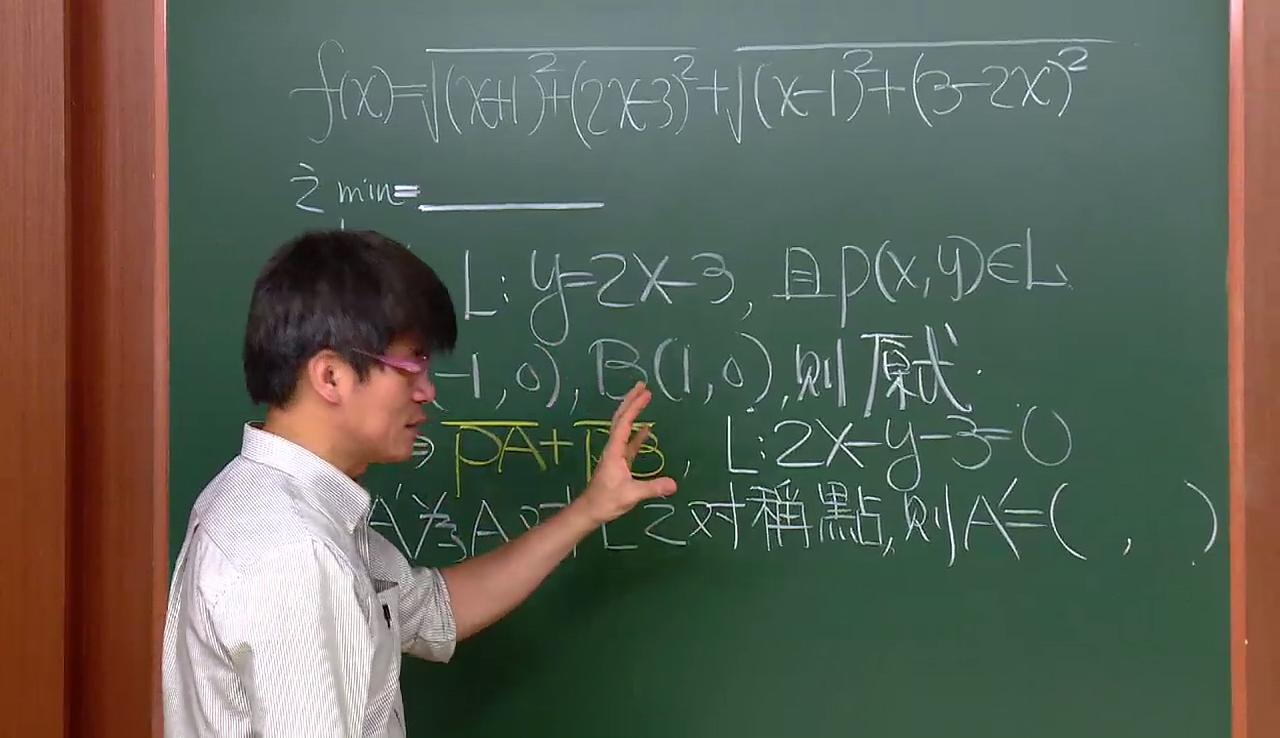 f(x)=√(x+1)²+(2x-3)²+√(x-1)²+(3-2x)²
之 min=
L: y=2x-3, 且P(x,y)∈L
(-1,0), B(1,0), 則原式
⇒ PA+PB, L:2x-y-3=0
A'為A對L之對稱點,則A'=( , )